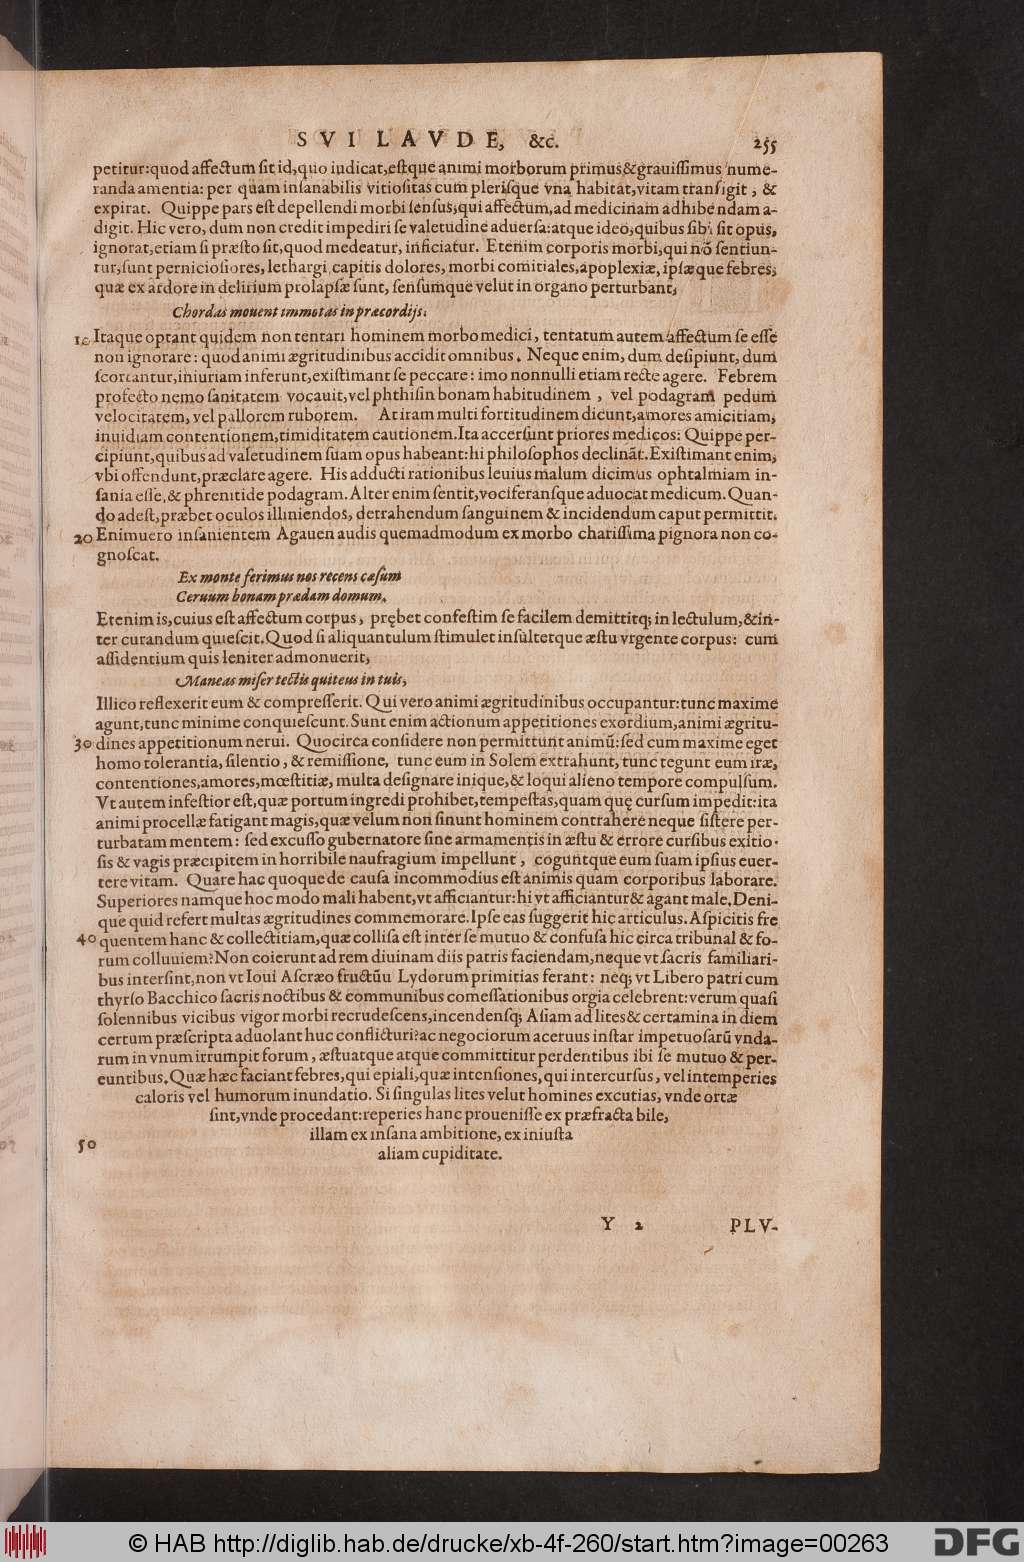 SVI LAVDE, &c. 255
petitur: quod affectum sit id, quo iudicat, estque animi morborum primus & grauissimus nume-
randa amentia: per quam insanabilis vitiositas cum plerisque vna habitat, vitam transigit, &
expirat. Quippe pars est depellendi morbi sensus, qui affectum, ad medicinam adhibendam a-
digit. Hic vero, dum non credit impediri se valetudine aduersa: atque ideo, quibus sibi sit opus,
ignorat, etiam si præsto sit, quod medeatur, inficiatur. Etenim corporis morbi, qui nõ sentiun-
tur, sunt perniciosiores, lethargi capitis dolores, morbi comitiales, apoplexiæ, ipsæque febres,
quæ ex ardore in delirium prolapsæ sunt, sensumque velut in organo perturbant,
Chordas mouent immotas in præcordijs.
10 Itaque optant quidem non tentari hominem morbo medici, tentatum autem affectum se esse
non ignorare: quod animi ægritudinibus accidit omnibus. Neque enim, dum desipiunt, dum
scortantur, iniuriam inferunt, existimant se peccare: imo nonnulli etiam recte agere. Febrem
profecto nemo sanitatem vocauit, vel phthisin bonam habitudinem, vel podagram pedum
velocitatem, vel pallorem ruborem. At iram multi fortitudinem dicunt, amores amicitiam,
inuidiam contentionem, timiditatem cautionem. Ita accersunt priores medicos: Quippe per-
cipiunt, quibus ad valetudinem suam opus habeant: hi philosophos declinãt. Existimant enim,
vbi offendunt, præclare agere. His adducti rationibus leuius malum dicimus ophtalmiam in-
sania esse, & phrenitide podagram. Alter enim sentit, vociferansque aduocat medicum. Quan-
do adest, præbet oculos illiniendos, detrahendum sanguinem & incidendum caput permittit.
20 Enimuero insanientem Agauen audis quemadmodum ex morbo charissima pignora non co-
gnoscat.
Ex monte ferimus nos recens cæsum
Ceruum bonam prædam domum.
Etenim is, cuius est affectum corpus, prębet confestim se facilem demittitq; in lectulum, & in-
ter curandum quiescit. Quod si aliquantulum stimulet insultetque æstu vrgente corpus: cum
assidentium quis leniter admonuerit,
Maneas miser tectis quiteus in tuis,
Illico reflexerit eum & compresserit. Qui vero animi ægritudinibus occupantur: tunc maxime
agunt, tunc minime conquiescunt. Sunt enim actionum appetitiones exordium, animi ægritu-
30 dines appetitionum nerui. Quocirca considere non permittunt animũ: sed cum maxime eget
homo tolerantia, silentio, & remissione, tunc eum in Solem extrahunt, tunc tegunt eum iræ,
contentiones, amores, mœstitiæ, multa designare inique, & loqui alieno tempore compulsum.
Vt autem infestior est, quæ portum ingredi prohibet, tempestas, quam quę cursum impedit: ita
animi procellæ fatigant magis, quæ velum non sinunt hominem contrahere neque sistere per-
turbatam mentem: sed excusso gubernatore sine armamentis in æstu & errore cursibus exitio-
sis & vagis præcipitem in horribile naufragium impellunt, coguntque eum suam ipsius euer-
tere vitam. Quare hac quoque de causa incommodius est animis quam corporibus laborare.
Superiores namque hoc modo mali habent, vt afficiantur: hi vt afficiantur & agant male. Deni-
que quid refert multas ægritudines commemorare. Ipse eas suggerit hic articulus. Aspicitis fre
40 quentem hanc & collectitiam, quæ collisa est inter se mutuo & confusa hic circa tribunal & fo-
rum colluuiem? Non coierunt ad rem diuinam diis patris faciendam, neque vt sacris familiari-
bus intersint, non vt Ioui Ascræo fructũu Lydorum primitias ferant: neq; vt Libero patri cum
thyrso Bacchico sacris noctibus & communibus comessationibus orgia celebrent: verum quasi
solennibus vicibus vigor morbi recrudescens, incendensq; Asiam ad lites & certamina in diem
certum præscripta aduolant huc conflicturi? ac negociorum aceruus instar impetuosarũ vnda-
rum in vnum irrumpit forum, æstuatque atque committitur perdentibus ibi se mutuo & per-
euntibus. Quæ hæc faciant febres, qui epiali, quæ intensiones, qui intercursus, vel intemperies
caloris vel humorum inundatio. Si singulas lites velut homines excutias, vnde ortæ
sint, vnde procedant: reperies hanc prouenisse ex præfracta bile,
illam ex insana ambitione, ex iniusta
50 aliam cupiditate.
Y 2 PLV-
© HAB http://diglib.hab.de/drucke/xb-4f-260/start.htm?image=00263 DFG